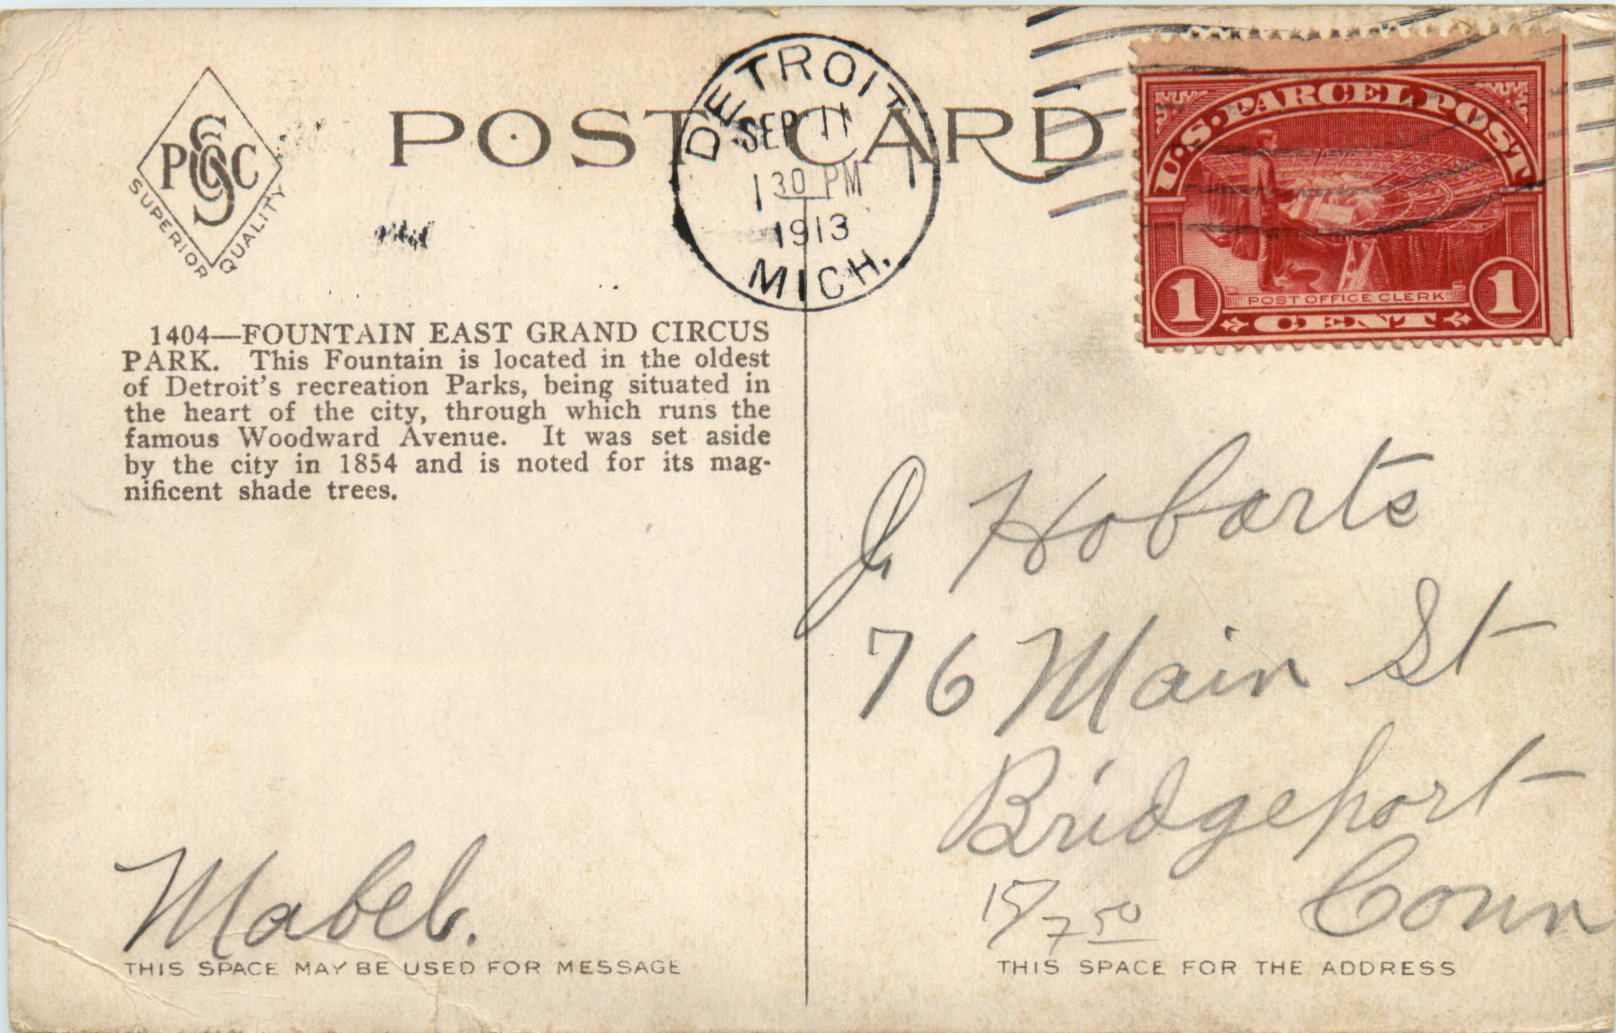 POST CARD
PSC&Co
SUPERIOR QUALITY
DETROIT
SEP 11
1 30 PM
1913
MICH.
U.S. PARCEL POST
POST OFFICE CLERK
1 CENT 1
1404—FOUNTAIN EAST GRAND CIRCUS
PARK. This Fountain is located in the oldest
of Detroit's recreation Parks, being situated in
the heart of the city, through which runs the
famous Woodward Avenue. It was set aside
by the city in 1854 and is noted for its mag-
nificent shade trees.
Mabel.
THIS SPACE MAY BE USED FOR MESSAGE
J Hobarts
76 Main St
Bridgeport
Conn
15/7 50
THIS SPACE FOR THE ADDRESS